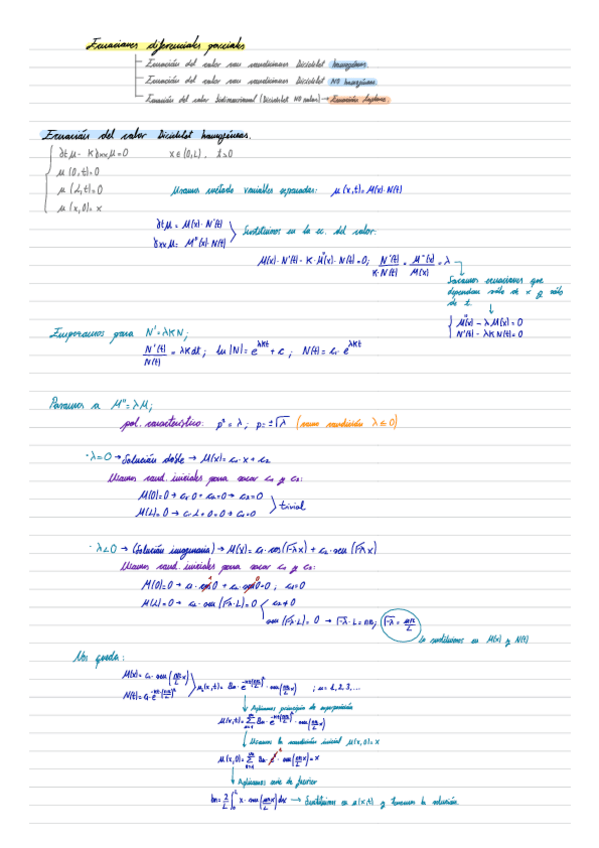 Ecuaciones diferenciales parciales
Ecuación del calor con condiciones Dirichlet homogéneas.
Ecuación del calor con condiciones Dirichlet NO homogéneas
Ecuación del calor bidimensional (Dirichlet NO nulas) → Ecuación Laplace.
Ecuación del calor Dirichlet homogéneas.
∂tμ - K∂xxμ=0 x∈(0,L), t>0
μ(0,t)=0
μ(L,t)=0 Usamos método variables separadas: μ(x,t)=M(x)·N(t)
μ(x,0)=x
∂tμ = M(x)·N'(t)
∂xxμ = M''(x)·N(t) Sustituimos en la ec. del calor:
M(x)·N'(t) - K·M''(x)·N(t)=0; N'(t)/K·N(t) = M''(x)/M(x) = λ
Sacamos ecuaciones que
dependan sólo de x y sólo
de t.
M''(x) - λM(x)=0
N'(t) - λKN(t)=0
Empezamos para N'=λKN;
N'(t)/N(t) = λKdt; ln|N| = e^λKt + c; N(t)= c₁·e^λKt
Pasamos a M''=λM;
pol. característico: p²=λ; p=±√λ (como condición λ≤0)
· λ=0 → Solución doble → M(x)= c₁·x + c₂
Usamos cond. iniciales para sacar c₁ y c₂:
M(0)=0 → c₁·0 + c₂=0 → c₂=0
M(L)=0 → c₁·L+0=0 → c₁=0 trivial
· λ<0 → (Solución imaginaria) → M(x)= c₁·cos(√-λx) + c₂·sen(√-λx)
Usamos cond. iniciales para sacar c₁ y c₂:
M(0)=0 → c₁·cos0 + c₂·sen0=0; c₁=0
M(L)=0 → c₂·sen(√-λ·L)=0 c₂≠0
sen(√-λ·L)=0 → √-λ·L=nπ; √-λ = nπ/L
Lo sustituimos en M(x) y N(t)
Nos queda:
M(x)= c₂·sen(nπ/L x)
N(t)= c₁·e^-Kt(nπ/L)² μₙ(x,t)= Bn·e^-Kt(nπ/L)²·sen(nπ/L x) ; n=1,2,3,...
Aplicamos principio de superposición
μ(x,t)= Σ Bn·e^-Kt(nπ/L)²·sen(nπ/L x)
Usamos la condición inicial μ(x,0)=x
μ(x,0)= Σ Bn·e⁰·sen(nπ/L x)=x
Aplicamos serie de Fourier
bn= 2/L ∫₀ᴸ x·sen(nπ/L x)dx → Sustituimos en μ(x,t) y tenemos la solución.